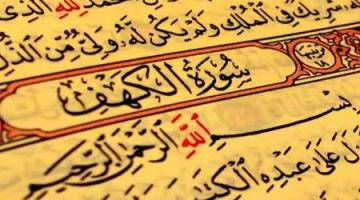 حمد لله الذي
شريك في الملك ولم يكن له ولي من الذل
سورة الكهف
بسم الله الرحمن الرحيم
على عبده الكتب